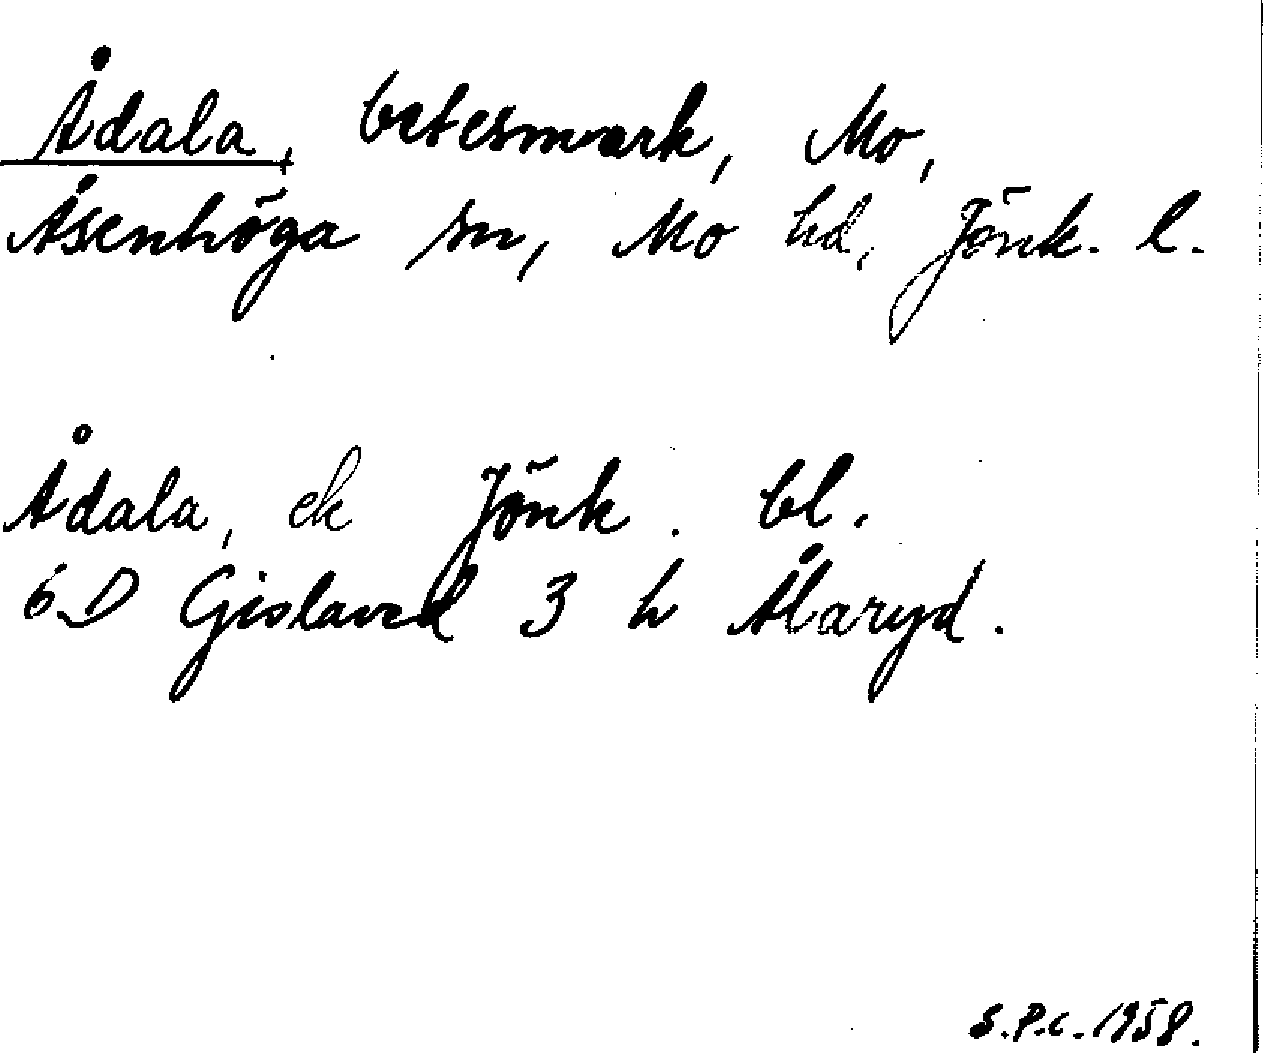 Ådala, betesmark, Mo,
Åsenhöga sn, Mo hd, Jönk. l.
Ådala, ek Jönk. bl.
6D Gislaved 3 h Ålaryd.
S.P.C. 1958.